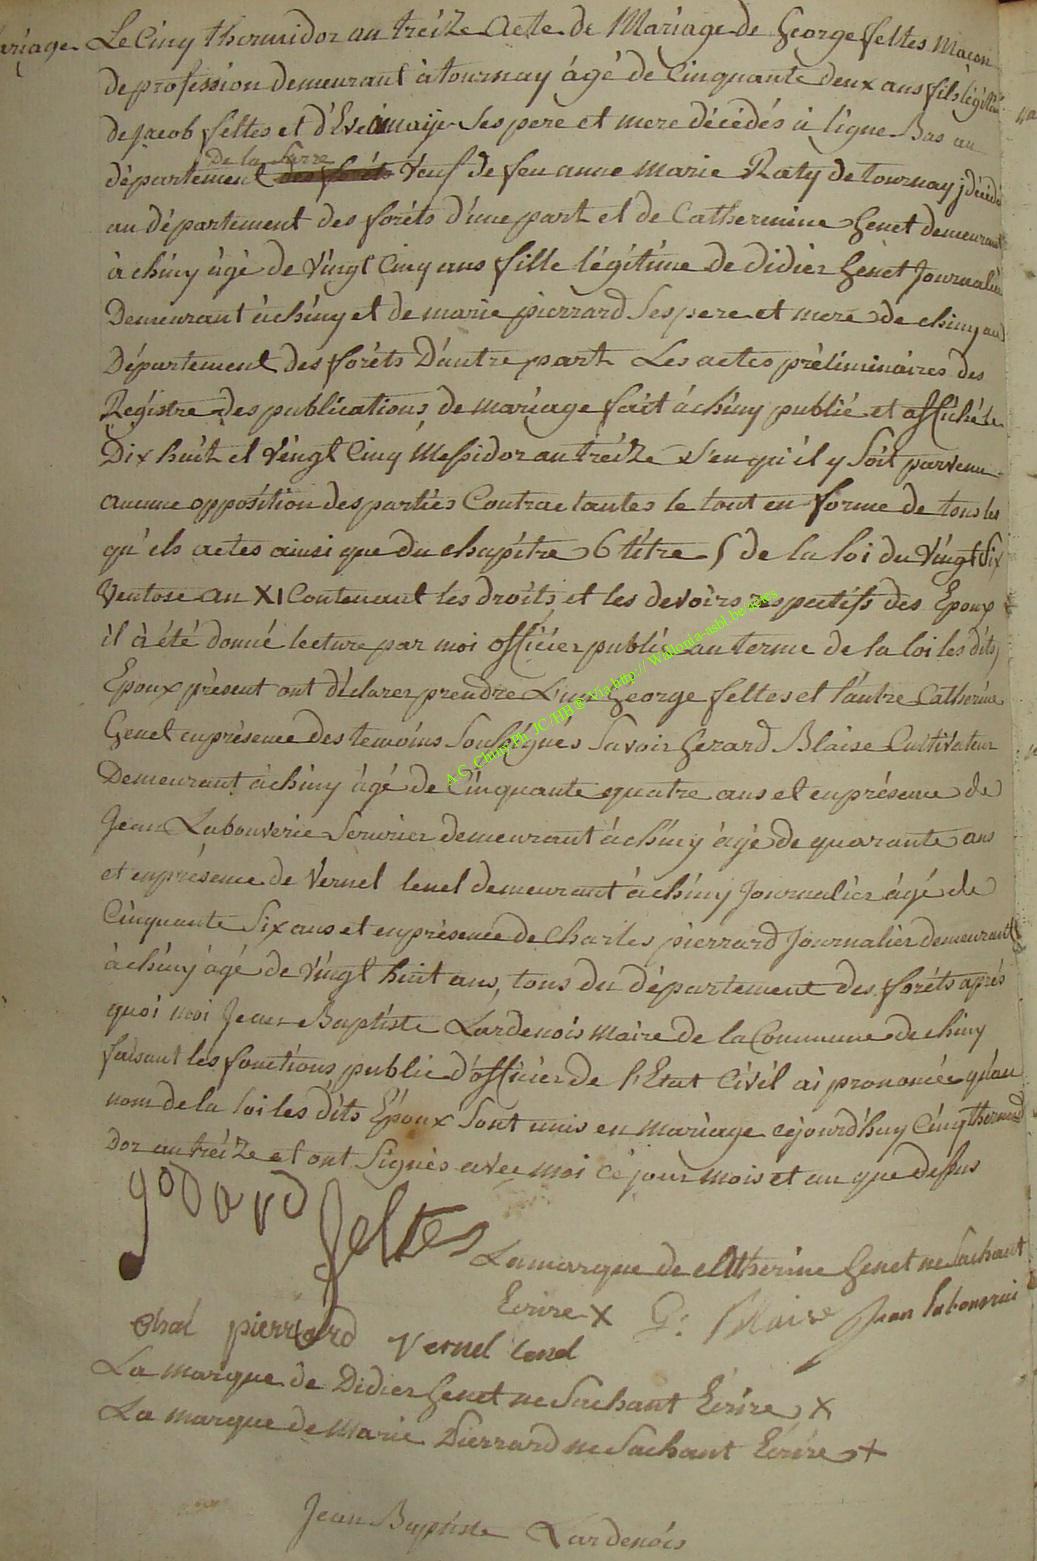 ariage Le Cinq thermidor an treize Acte de Mariage de George feltes Maçon
de profession demeurant à tournay âgé de Cinquante deux ans fils légitime
de jacob feltes et d'Eve maije Ses pere et mere décédés à ligne Bas au
De la Sarre
département des forêts Veuf de feu anne Marie Raty de tournay j décédé
au département des forêts d'une part et de Cathermine Genet demeurant
à chiny âgé de Vingt Cinq ans fille légitime de Didier Genet Journalier
Demeurant à chiny et de marie pierrard Ses pere et mere de chiny au
Département des forêts D'autre part Les actes préliminaires des
Régistre des publications de mariage fait à chiny publié et affiché le
Dix huit et Vingt Cinq Messidor an treize s'en qu'il y Soit parvenu
aucune opposition des parties Contractantes le tout en forme de tous les
qu'els actes ainsi que du chapitre 6 titre 5 de la loi du Vingt Six
Ventose an XI Contenant les droits et les devoirs respectifs des Epoux
il à été donné lecture par moi officier public au terme de la loi les dits
Epoux présent ont déclarer prendre L'un George feltes et l'autre Catherine
Genet en présence des temoins Soussignés Savoir Gerard Blaise Cultivateur
Demeurant à chiny âgé de Cinquante quatre ans et en présence de
Jean Labouverie Serurier demeurant à chiny âgé de quarante ans
et en présence de Vernel lenel demeurant à chiny Journalier âgé de
Cinquante Six ans et en présence de Charles pierrard Journalier demeurant
à chiny âgé de Vingt huit ans, tous du département des forêts aprés
quoi moi Jean Baptiste Lardenois maire de la Commune de chiny
faisant les fonctions public d'officier de l'Etat Civil ai prononcée qu'au
nom de la loi les dits Epoux Sont unis en mariage cejourd'huy Cinq thermi
Dor an treize et ont Signés avec moi ce jour mois et an que dessus
feltes
La marque de Catherine Genet ne Sachant
Ecrire X G: Blaise Jean labouverie
Chal pierrard Vernel lenel
La marque de Didier Genet ne Sachant Ecrire X
La marque de Marie Pierrard ne Sachant Ecrire +
Jean Baptiste Lardenois
A.G. Chiny Ph JC/HB® Via http://Wallonia-asbl.be/actes